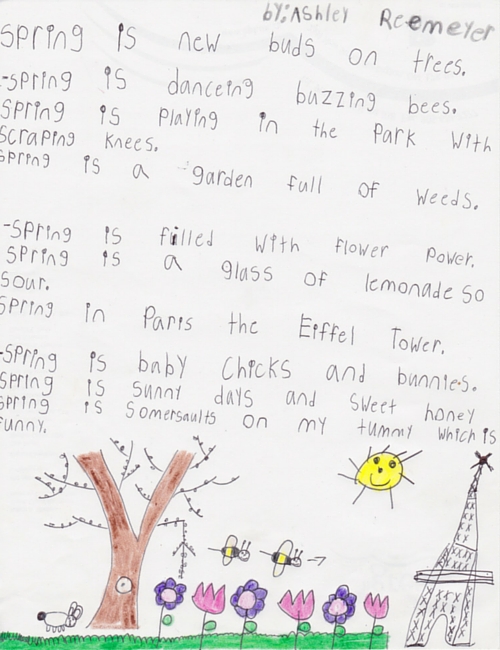 by: Ashley Reemeyer
Spring is new buds on trees.
-spring is danceing buzzing bees.
Spring is playing in the park with
scraping knees.
spring is a garden full of weeds.
-spring is filled with flower power.
spring is a glass of lemonade so
sour.
spring in Paris the Eiffel Tower.
-spring is baby chicks and bunnies.
spring is sunny days and sweet honey
spring is somersaults on my tummy which is
funny.